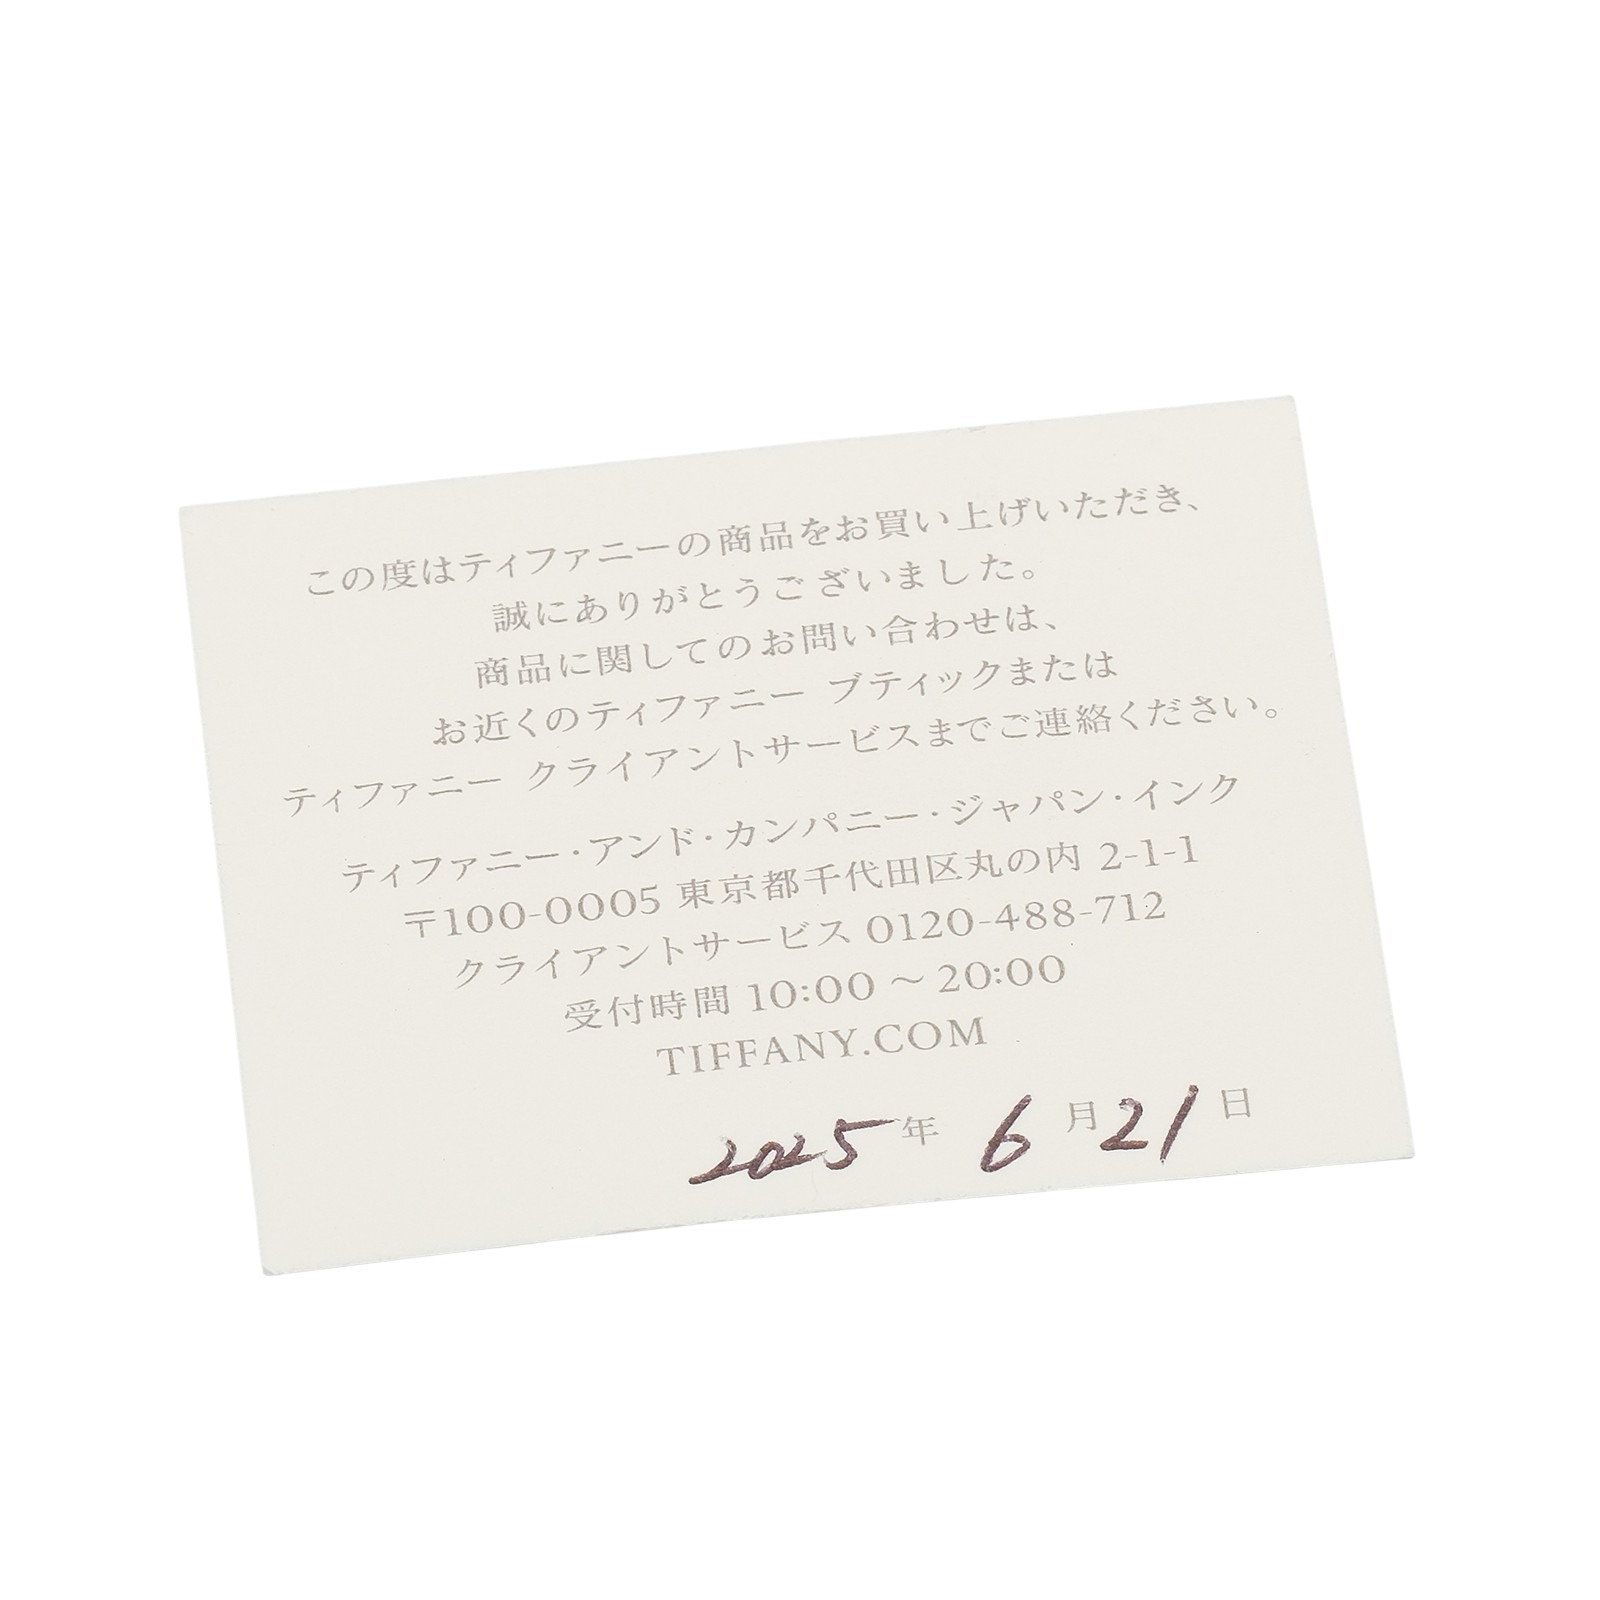 この度はティファニーの商品をお買い上げいただき、
誠にありがとうございました。
商品に関してのお問い合わせは、
お近くのティファニー ブティックまたは
ティファニー クライアントサービスまでご連絡ください。
ティファニー・アンド・カンパニー・ジャパン・インク
〒100-0005 東京都千代田区丸の内 2-1-1
クライアントサービス 0120-488-712
受付時間 10:00 〜 20:00
TIFFANY.COM
2025 年 6 月 21 日